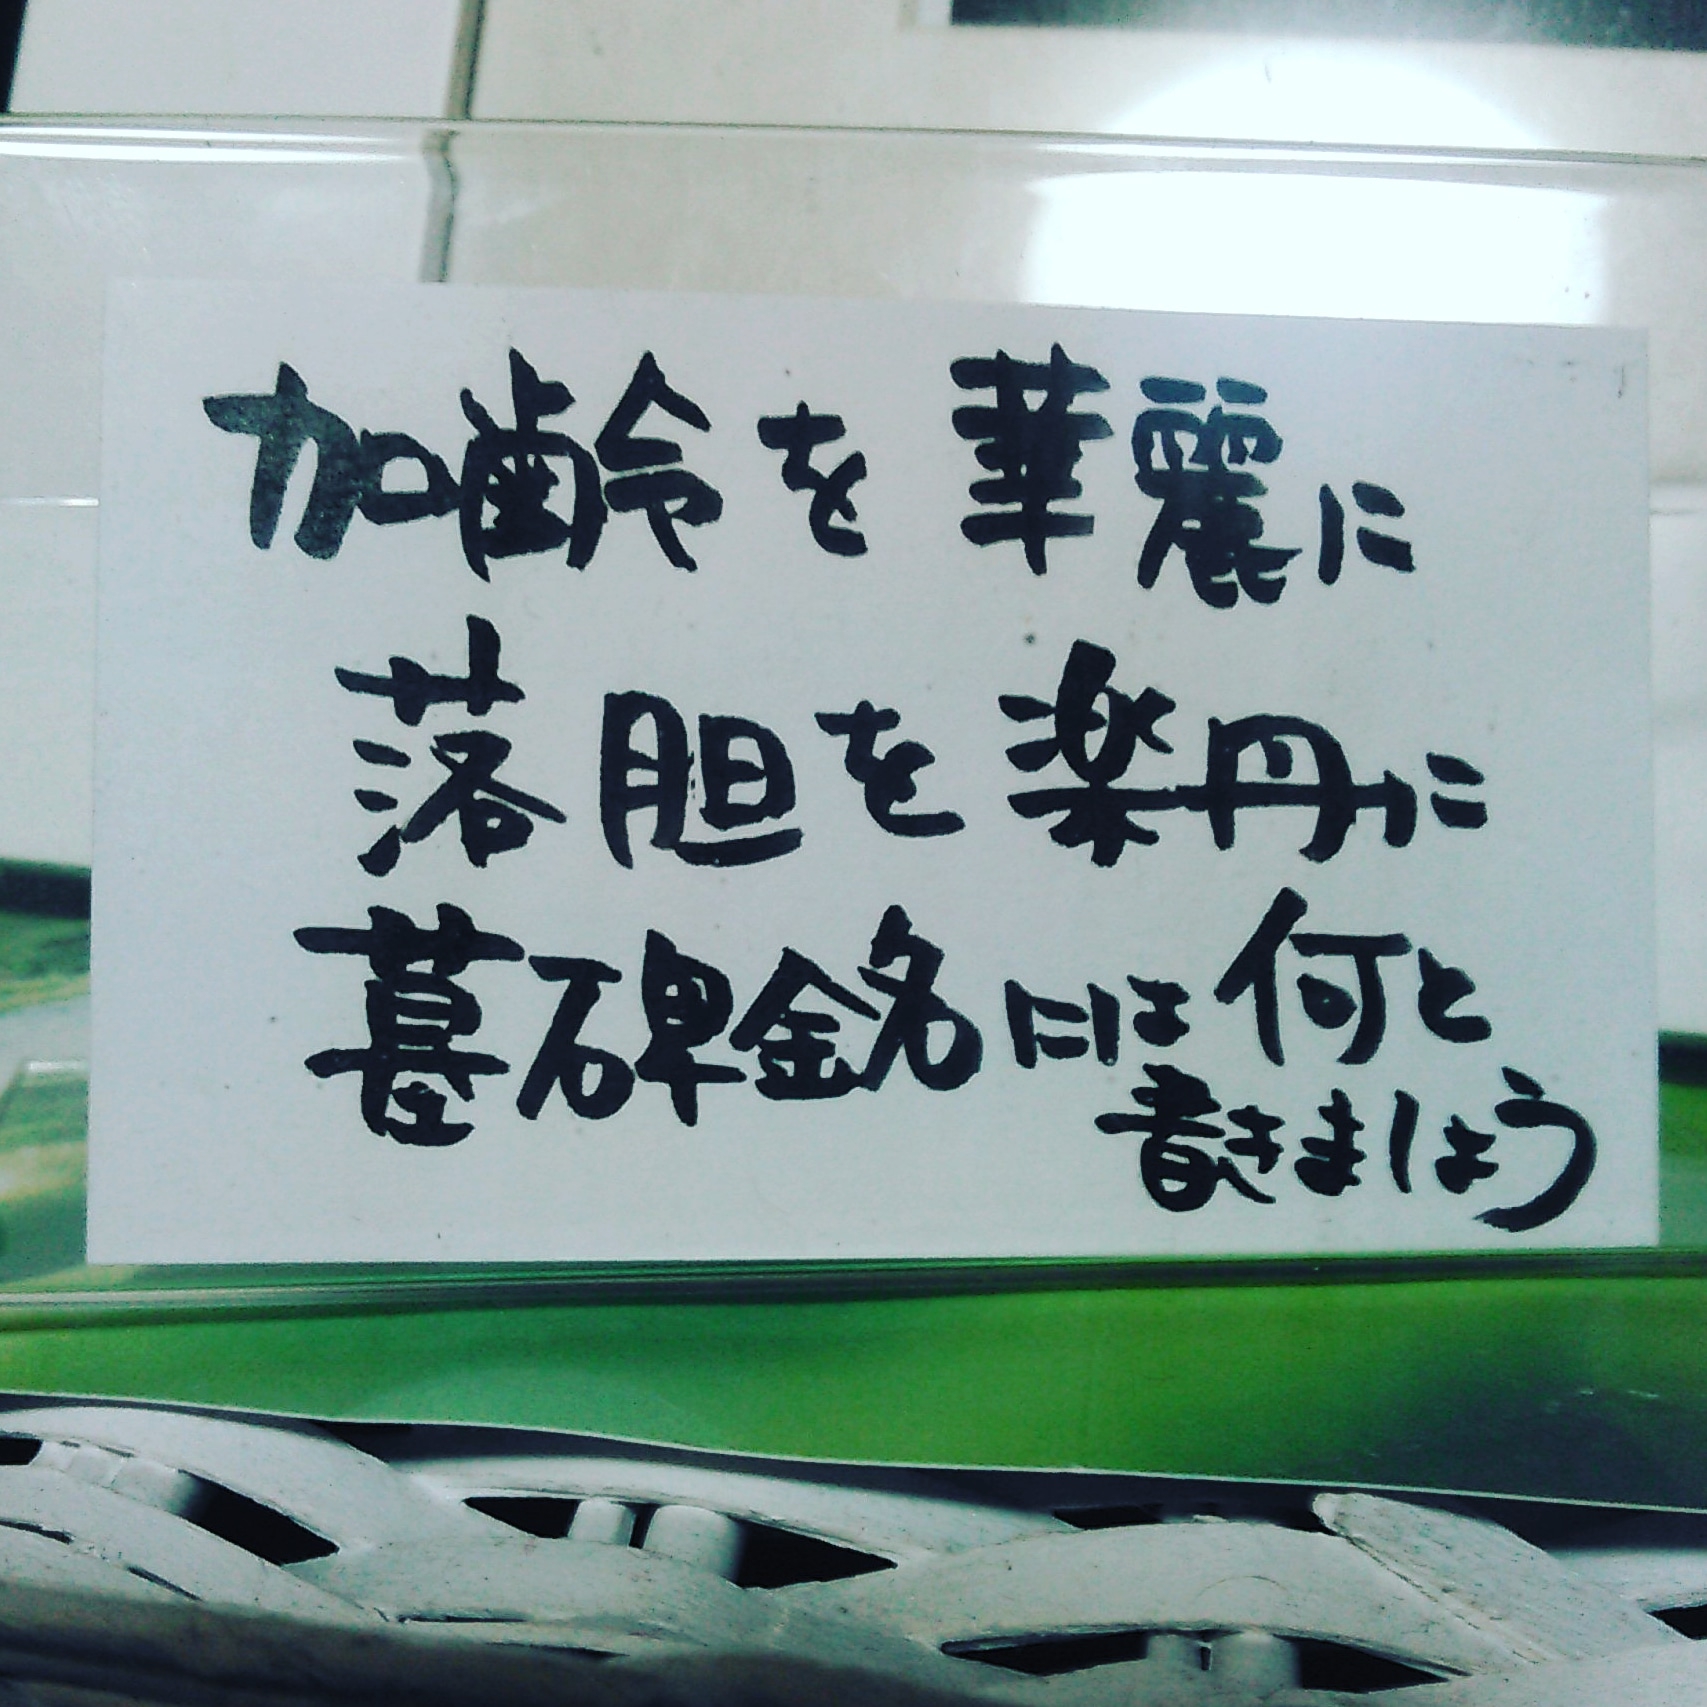 加齢を華麗に
落胆を楽丹に
墓碑銘には何と
書きましょう